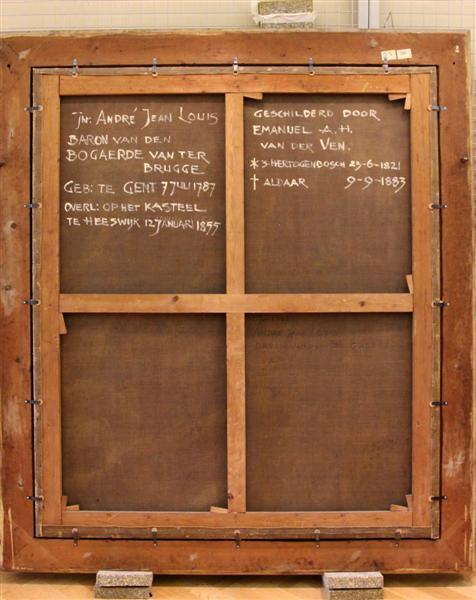 Jhr. André Jean Louis
Baron van den
Bogaerde van ter
Brugge
Geb: te Gent 7 Juli 1787
Overl: op het Kasteel
te Heeswijk 12 Januari 1855
Geschilderd door
Emanuel A.H.
van der Ven.
* 's-Hertogenbosch 23-6-1821
† Aldaar 9-9-1883